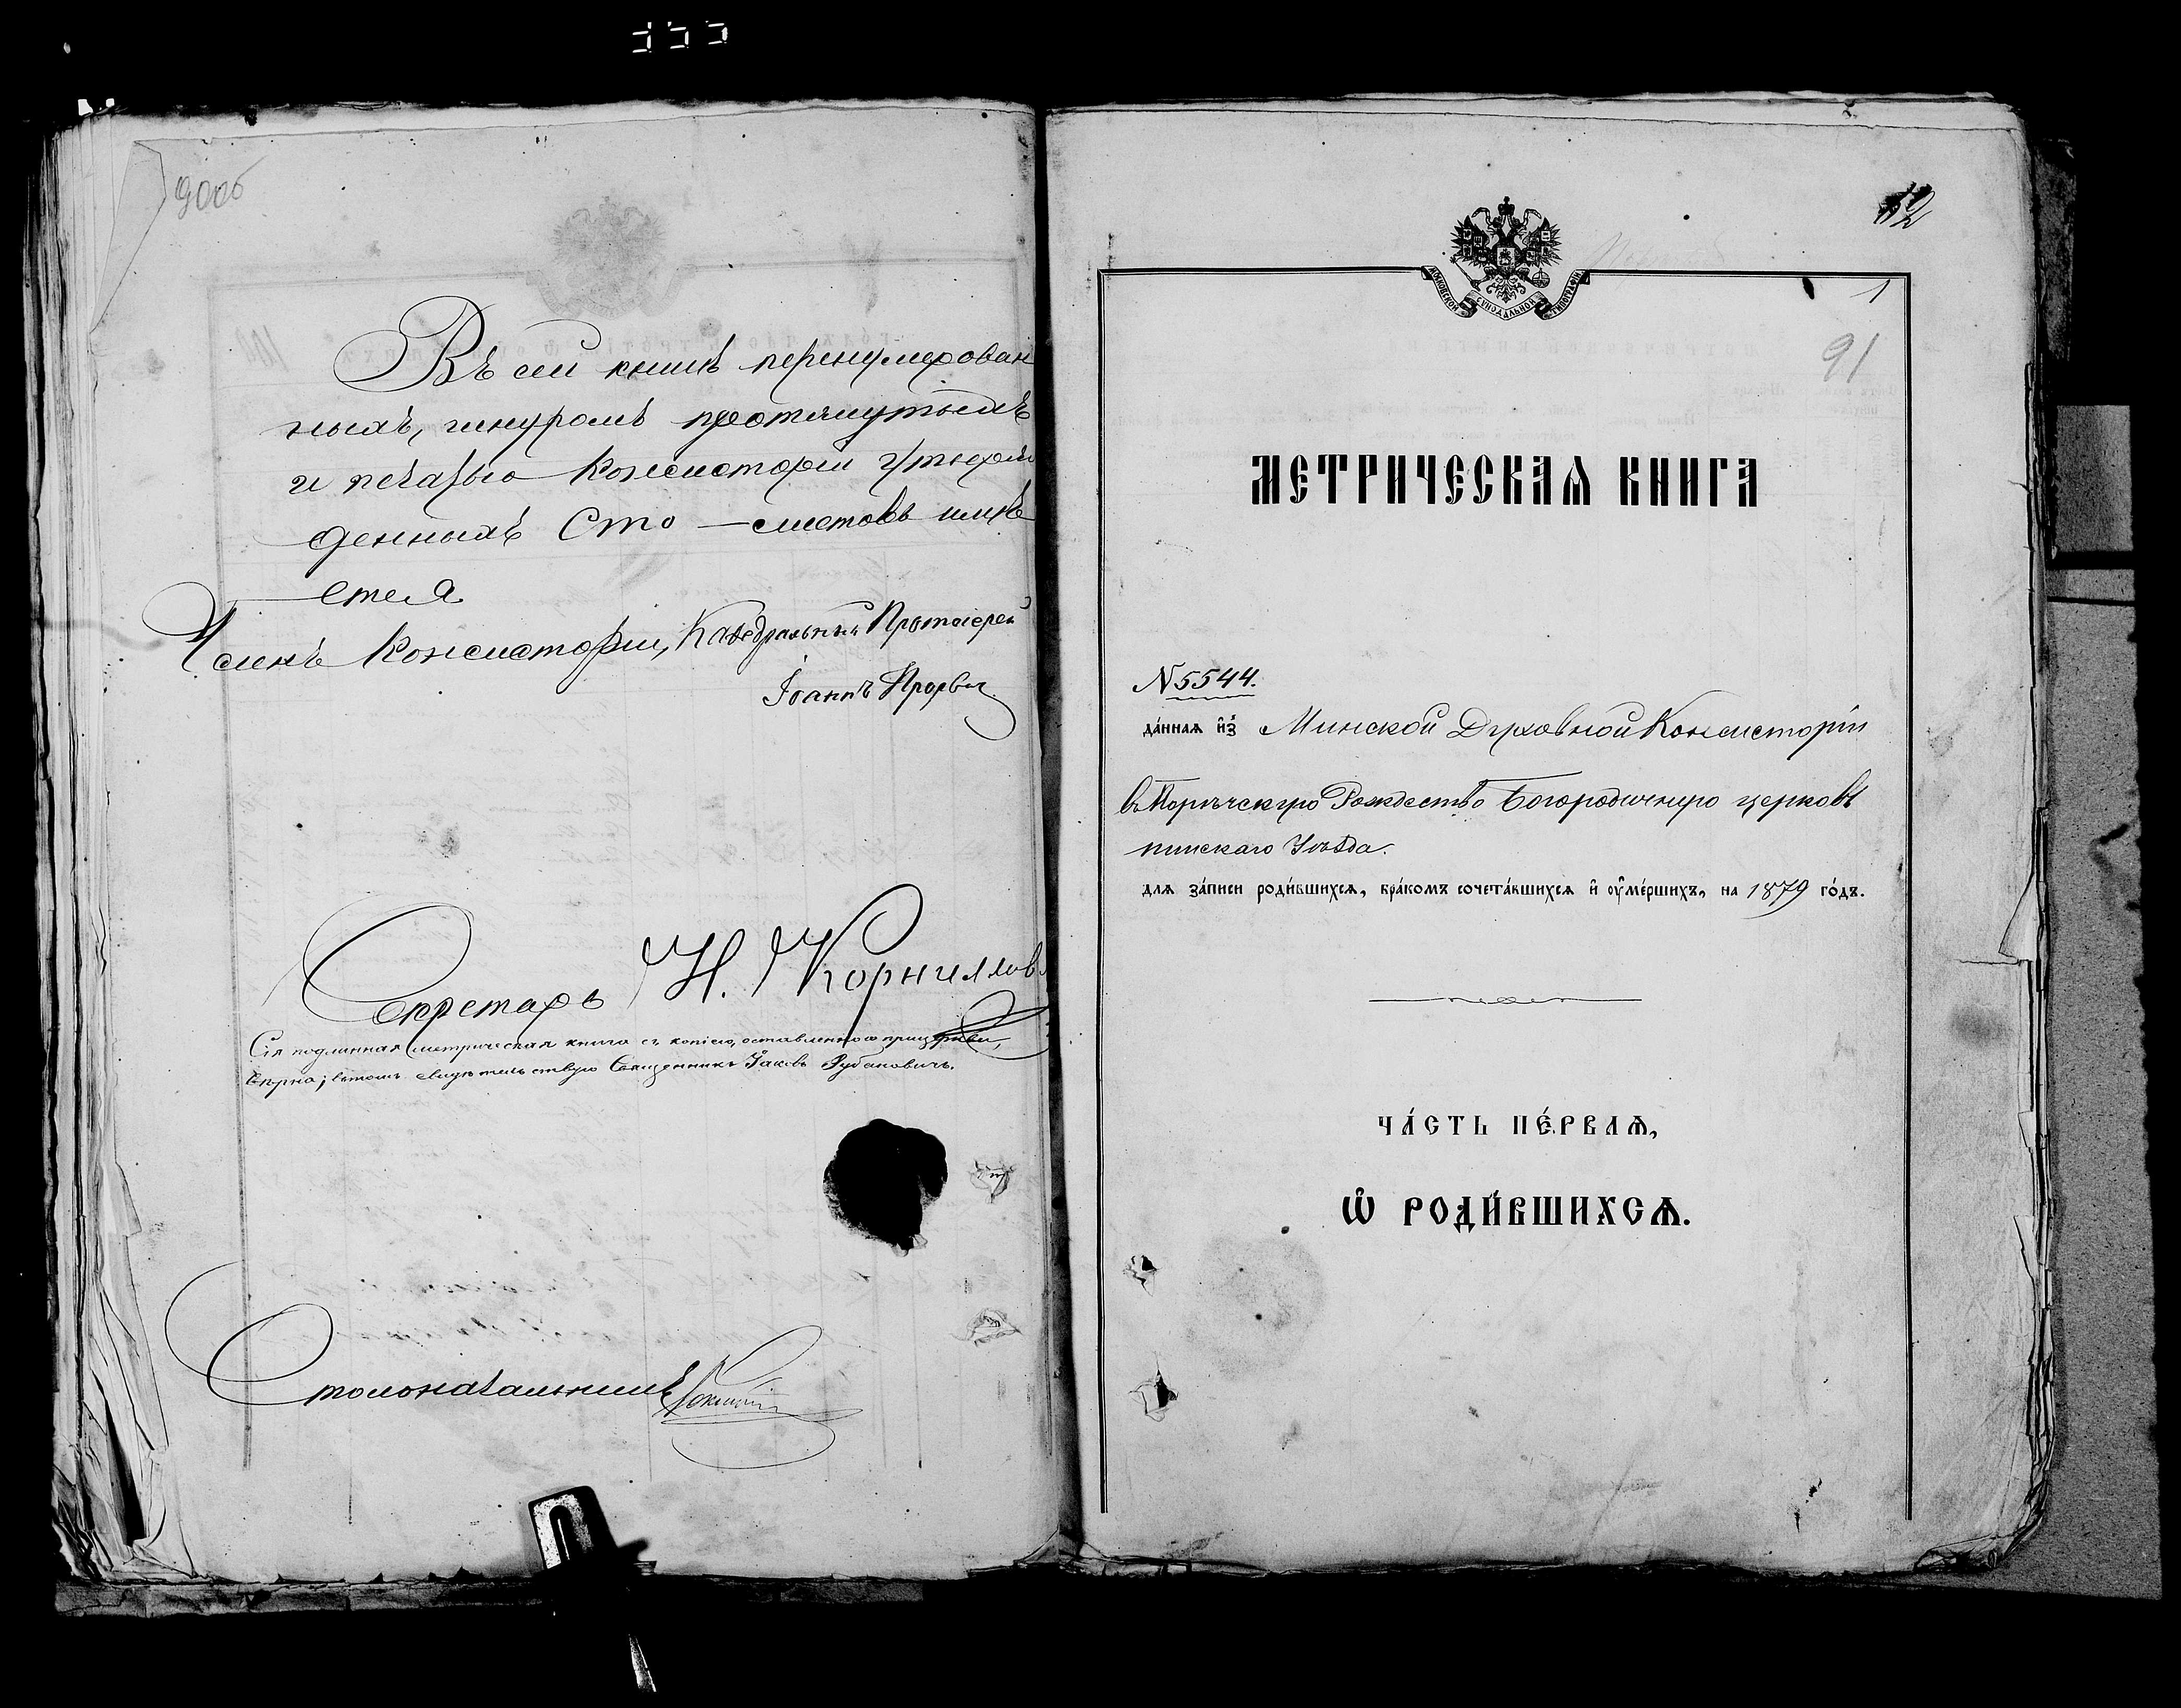 90об
Въ сей книгѣ перенумерован
ныхъ, шнуромъ протянутыхъ
и печатью Консисторіи утверж
денныхъ Сто — листовъ имѣ
ется
Членъ Консисторіи, Каѳедральный Протоіерей
Іоаннъ
Секретарь Н. Корниллов
Сія подлинная метрическая книга съ копіею, оставленною при церкви,
вѣрна; въ томъ свидѣтельствую Священникъ Іаковъ Рубановичъ.
Столоначальникъ
12
МОСКОВСКОЙ СѴНОДАЛЬНОЙ ТИПОГРАФІИ
1
91
МЕТРИЧЕСКАѦ КНИГА
№ 5544.
да́ннаѧ и҆з̾ Минской Духовной Консисторіи
въ Порѣчскую Рождество Богородичную церковь
пинскаго Уѣзда.
длѧ за́писи роди́вшихсѧ, бра́комъ сочета́вшихсѧ и҆ ᲂу҆ме́ршихъ, на 1879 го́дъ.
ЧА́СТЬ ПЕ́РВАѦ,
Ѽ РОДИ́ВШИХСѦ.